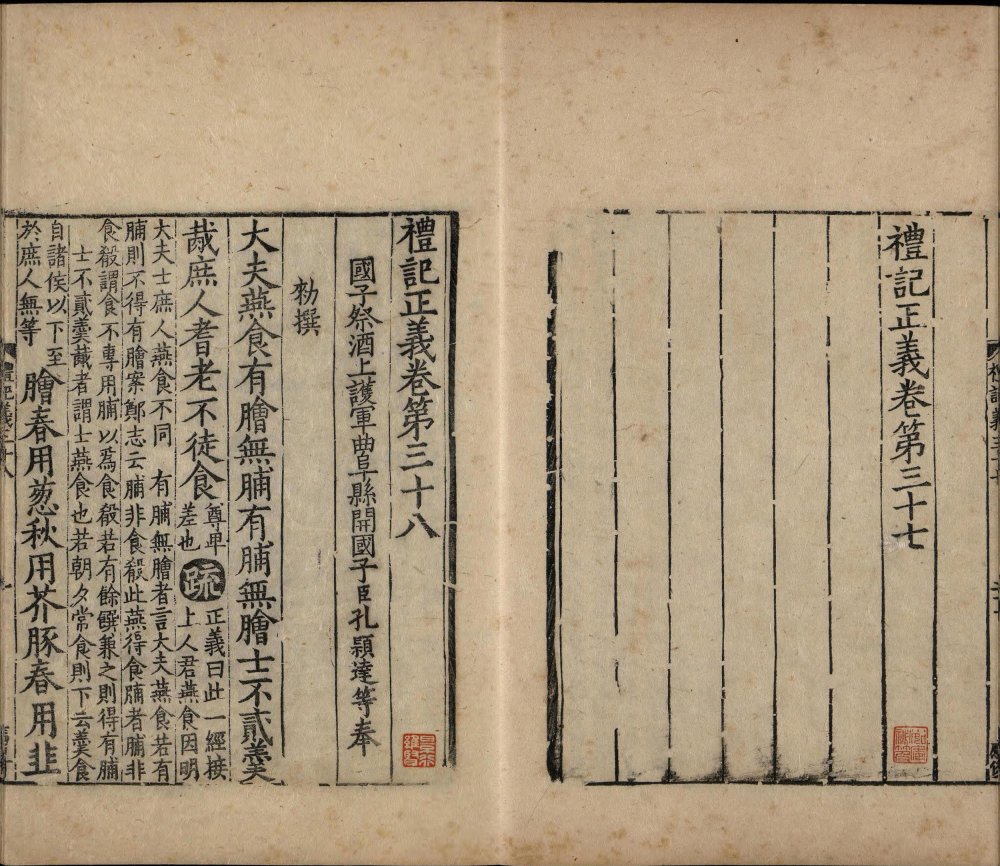 禮記正義卷第三十七
禮記正義卷第三十八
國子祭酒上護軍曲阜縣開國子臣孔穎達等奉
勑撰
大夫燕食有膾無脯有脯無膾士不貳羹
胾庶人耆老不徒食
尊卑
差也
疏
正義曰此一經接
上人君燕食因明
大夫士庶人燕食不同 有脯無膾者言大夫燕食若有
脯則不得有膾案鄭志云脯非食殽此燕得食脯者脯非
食殽謂食不專用脯以爲食殽若有餘饌兼之則得有脯
士不貳羹胾者謂士燕食也若朝夕常食則下云羹食
自諸侯以下至
於庶人無等
膾春用葱秋用芥豚春用韭